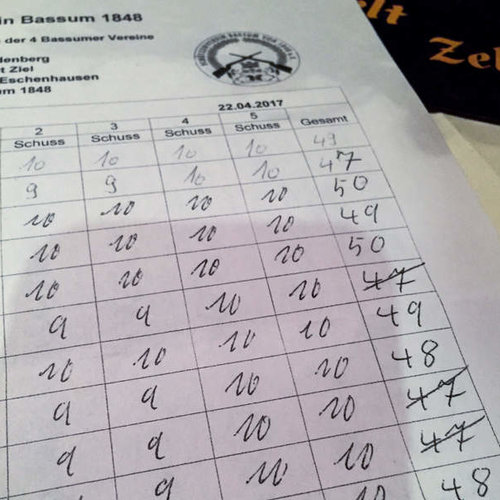 in Bassum 1848
der 4 Bassumer Vereine
denberg
t Ziel
Eschenhausen
um 1848
22.04.2017
2 3 4 5 Gesamt
Schuss Schuss Schuss Schuss
10 10 10 10 49
9 9 10 10 47
10 10 10 10 50
10 10 10 10 49
10 10 10 10 50
9 9 10 10 47
10 10 10 10 49
9 9 10 10 48
9 9 10 10 47
9 10 10 47
48